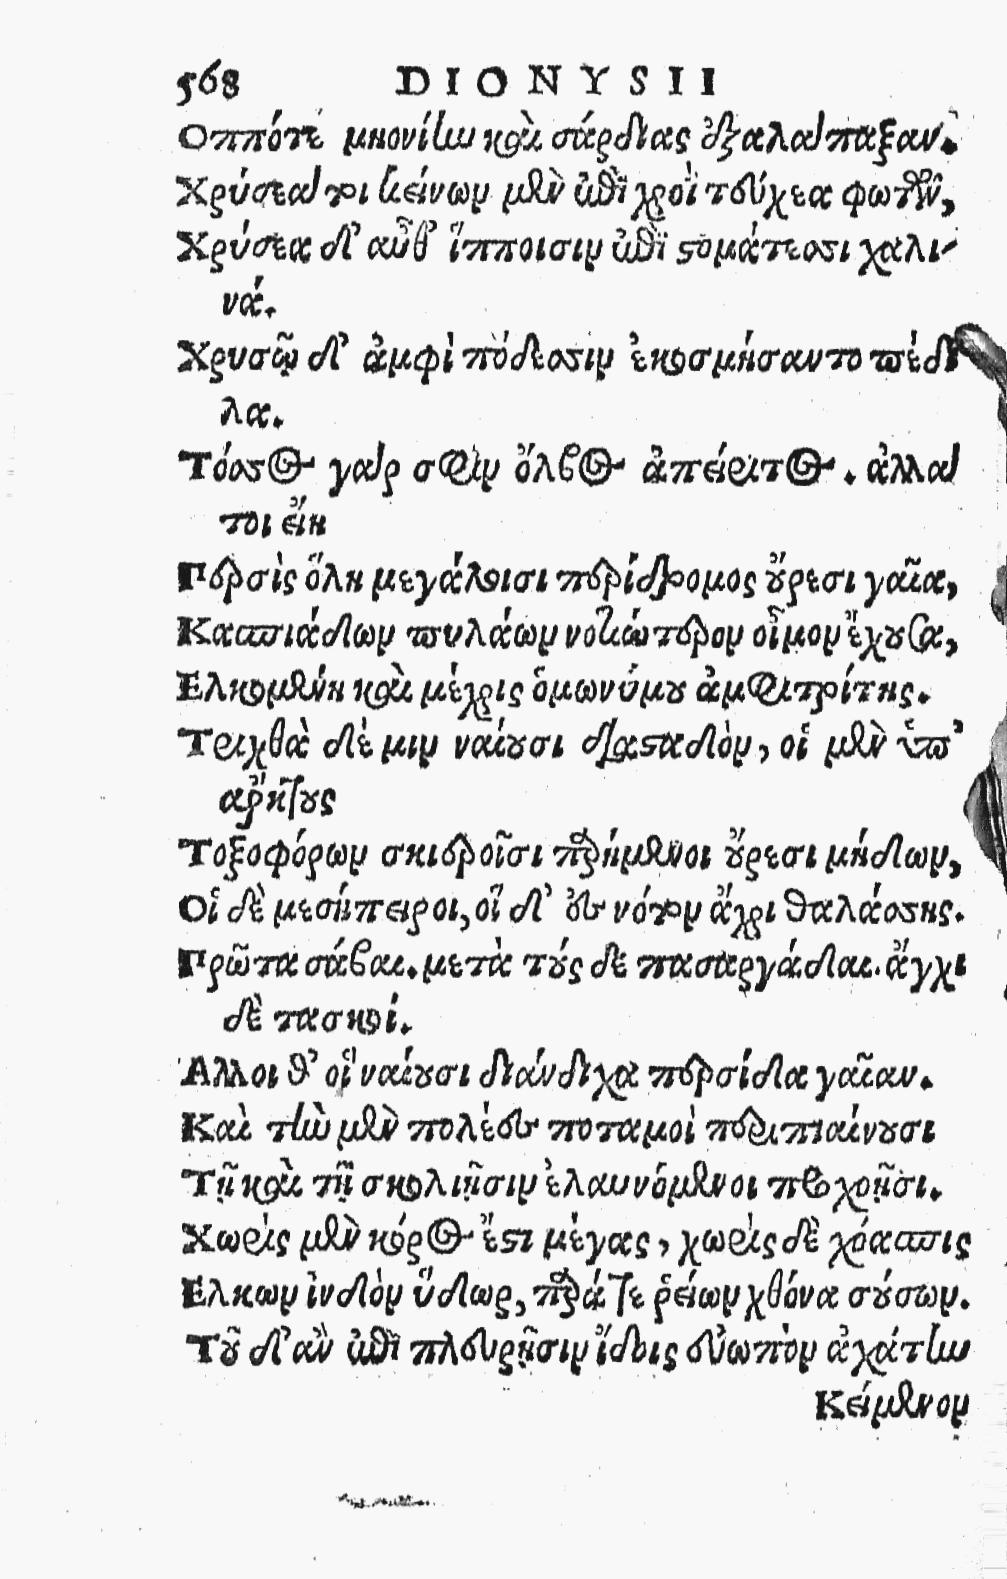 568 DIONYSII
Οππότε μηονίην καὶ σάρδιας ἐξαλάπαξαν.
Χρύσεά τοι κείνων μὲν ἐπὶ χροῒ τεύχεα φωτῶν,
Χρύσεα δ' αὖθ' ἵπποισιν ἐπὶ στομάτεσσι χαλι-
νά.
Χρυσῷ δ' ἀμφὶ πόδεσσιν ἐκοσμήσαντο πέδι
λα.
Τόσσος γάρ σφιν ὄλβος ἀπείριτος. ἀλλά
τοι εἴη
Περσὶς ὅλη μεγάλοισι περίδρομος οὔρεσι γαῖα,
Κασπιάδων πυλάων νοτιώτερον οἶμον ἔχουσα,
Ελκομένη καὶ μέχρις ὁμωνύμου ἀμφιτρίτης.
Τριχθὰ δέ μιν ναίουσι διασταδὸν, οἱ μὲν ὑπ'
ἀρκτους
Τοξοφόρων σκιεροῖσι παρήμενοι οὔρεσι μήδων,
Οἱ δὲ μεσήπειροι, οἵ δ' ἐν νότον ἄχρι θαλάσσης.
Πρῶτα σάβαι. μετὰ τούς δε πασαργάδαι. ἄγχι
δὲ τασκοί.
Αλλοι θ' οἳ ναίουσι διάνδιχα περσίδα γαῖαν.
Καὶ τὴν μὲν πολέες ποταμοὶ περιπιαίνουσι
Τῇ καὶ τῇ σκολιῇσιν ἐλαυνόμενοι προχοῇσι.
Χωρὶς μὲν κόρος ἔστι μέγας, χωρὶς δὲ χόασπις
Ελκων ἰνδὸν ὕδωρ, παρά τε ῥείων χθόνα σούσων.
Τοῦ δ' ἂν ἐπὶ πλευρῇσιν ἴδοις εὐωπὸν ἀχάτην
Κείμενον